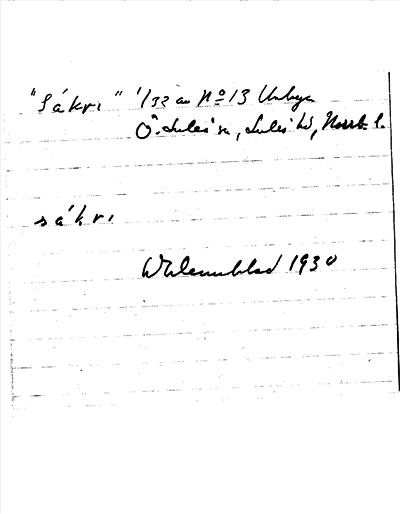 "Såkri" 1/32 av Nº 13 Unbyn
Ö. Luleå sn, Luleå hd, Norrb. l.
såkri
Wklenmblad 1930